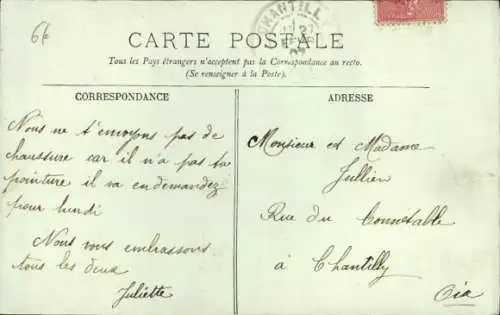 6f
CHANTILLY
CARTE POSTALE
Tous les Pays étrangers n'acceptent pas la Correspondance au recto.
(Se renseigner à la Poste).
CORRESPONDANCE
Nous ne t'envoyons pas de
chaussure car il n'a pas ta
pointure il va en demandez
pour lundi
Nous vous embrassons
tous les deux
Juliette
ADRESSE
Monsieur et Madame
Jullien
Rue du Connétable
à Chantilly
Oise